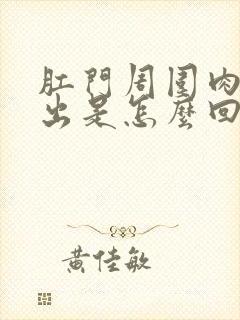 肛門周圍肉
出是怎麼回
黃佳敏